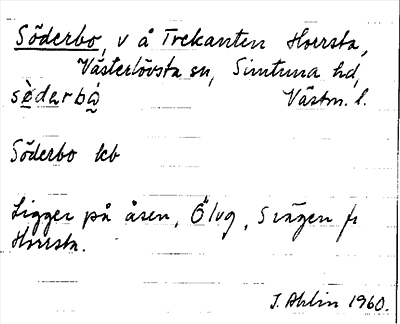 Söderbo, v å Trekanten Horrsta,
Västerlövsta sn, Simtuna hd,
sè̤da̤rbå̤ Västm. l.
Söderbo kb
Ligger på åsen, Ölvg, S vägen fr
Horrsta.
I. Ahlin 1960.